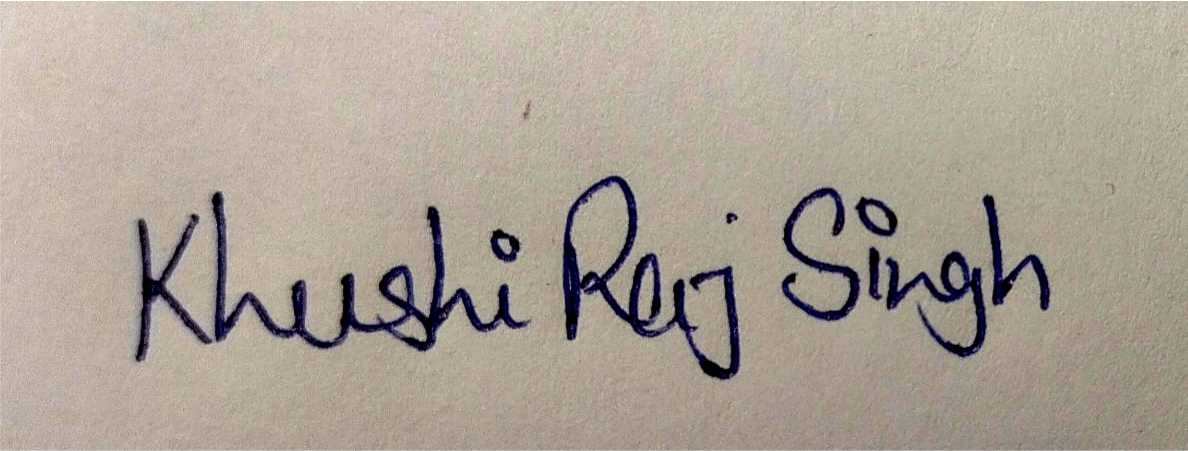 Khushi Raj Singh